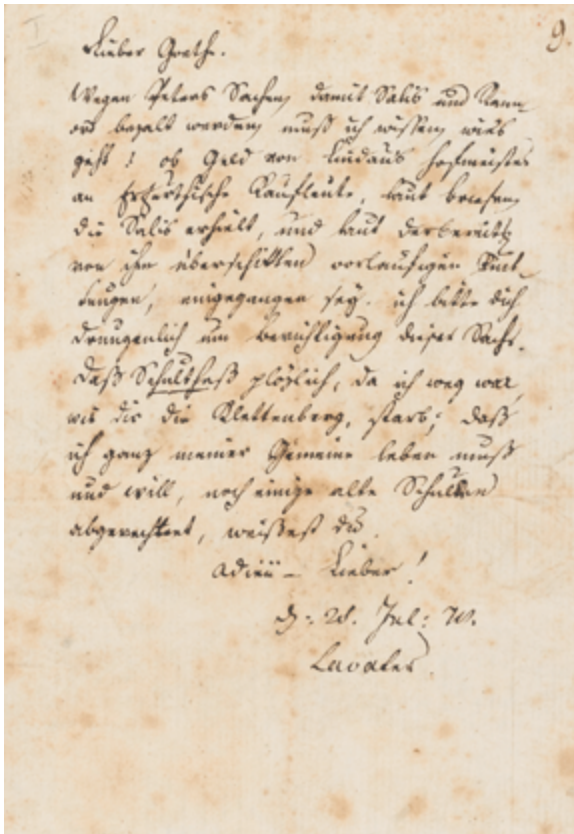 9.
Lieber Goethe.
Wegen Peters Sachen, damit Salis und Kann-
bezalt werden, muß ich wißen, wies
geht! ob Geld von Lindaus Hofmeister
an Erfurthische Kaufleute, laut briefen,
die Salis erhielt, und laut der bereits
von ihm überschikten vorläufigen Quit-
tungen, eingegangen sey. ich bitte dich
drungenlich um berichtigung dieser Sache.
daß Schultheß plözlich, da ich weg war,
wie dir die Klettenberg, starb; daß
ich ganz meiner Gemeine leben muß
und will, noch einige alte Schulden
abgerechnet, weißest du.
adieu – Lieber!
d: 28. Jul:
Lavater.